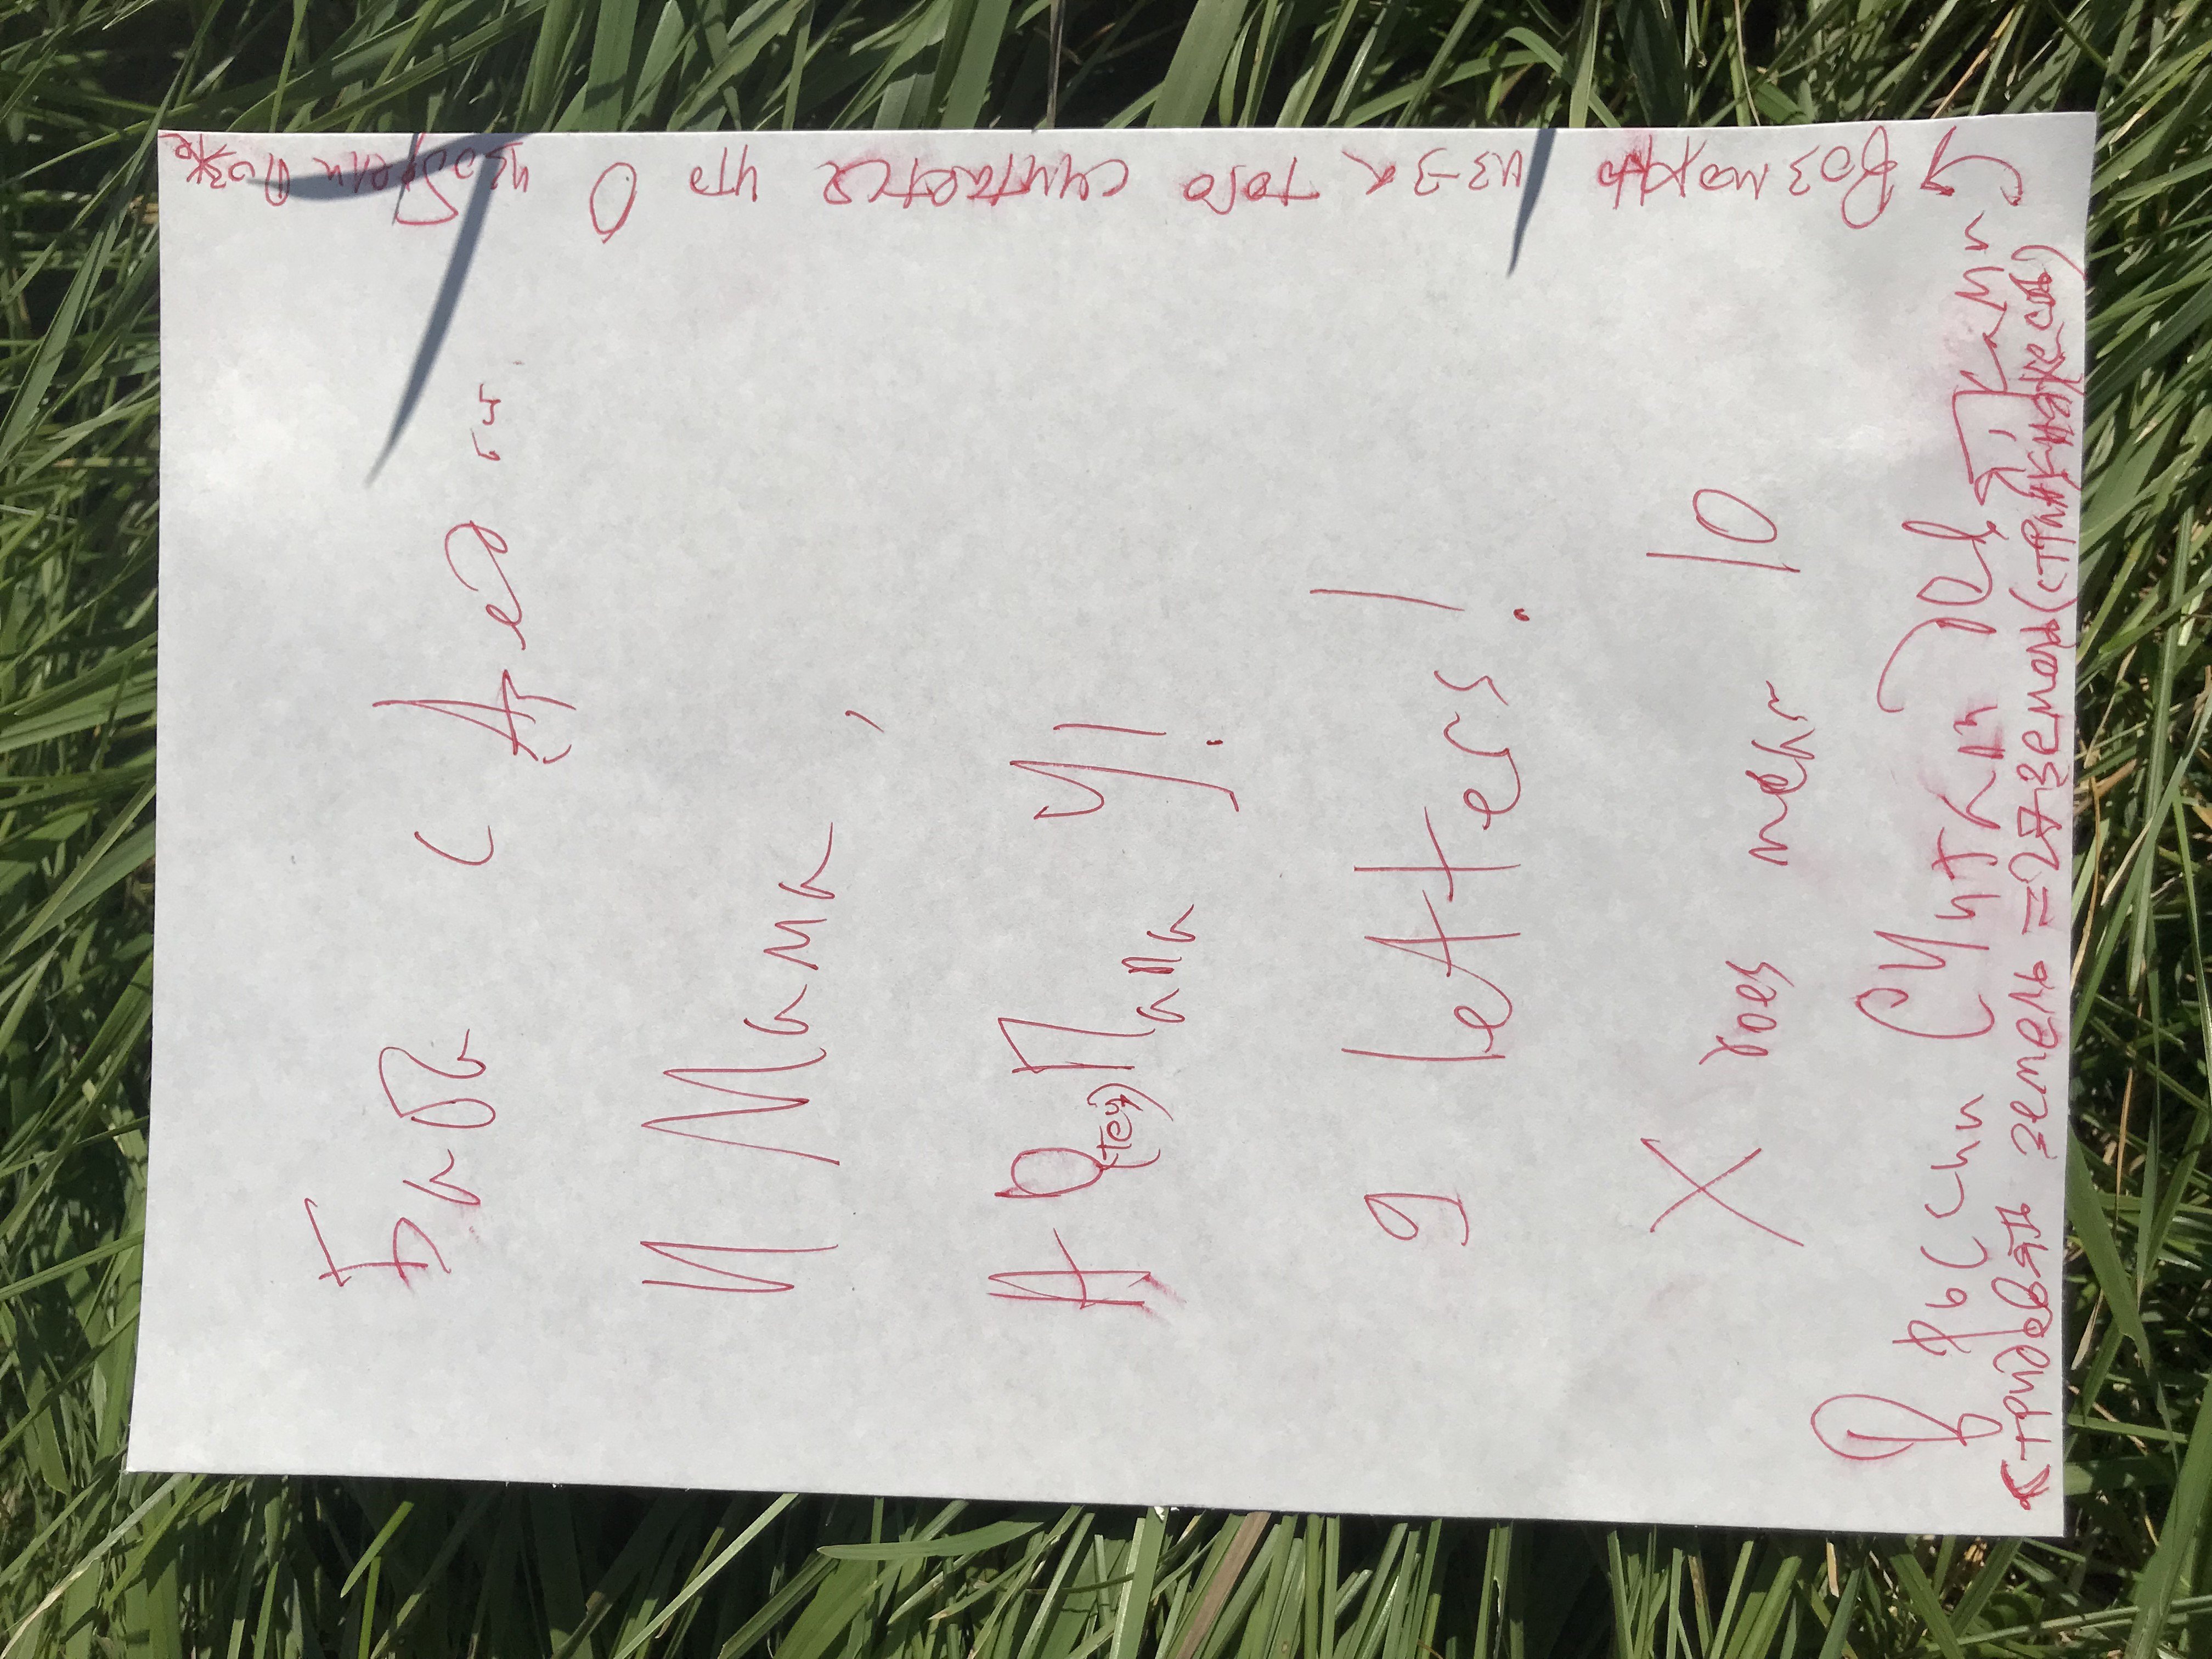 Баба с Дед
И Мама,
А О(тец) Папа У!
9 letters!
X roes mean 10
В россии Считали девятками
тридевять земель = 27 земель (стран,княжеств)
возможно из-за того считается что 0 изобрели позже